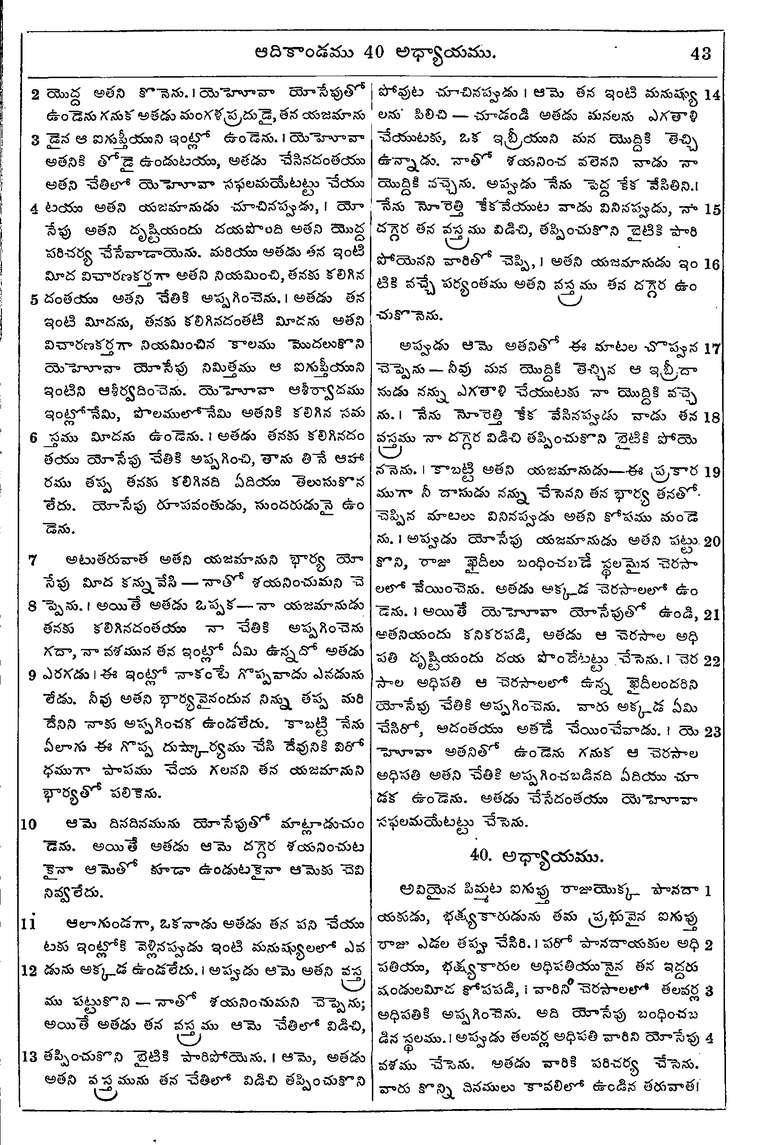 ఆదికాండము 40 అధ్యాయము. 43
2 యొద్ద అతని కొనెను. । యెహోవా యోసేపుతో
ఉండెను గనుక అతడు మంగళప్రదుడై, తన యజమాను
3 డైన ఆ ఐగుప్తీయుని ఇంట్లో ఉండెను. । యెహోవా
అతనికి తోడై ఉండుటయు, అతడు చేసినదంతయు
అతని చేతిలో యెహోవా సఫలమయేటట్టు చేయు
4 టయు అతని యజమానుడు చూచినప్పుడు, । యో
సేపు అతని దృష్టియందు దయపొంది అతని యొద్ద
పరిచర్య చేసేవాడాయెను. మరియు అతడు తన ఇంటి
మీద విచారణకర్తగా అతని నియమించి, తనకు కలిగిన
5 దంతయు అతని చేతికి అప్పగించెను. । అతడు తన
ఇంటి మీదను, తనకు కలిగినదంతటి మీదను అతని
విచారణకర్తగా నియమించిన కాలము మొదలుకొని
యెహోవా యోసేపు నిమిత్తము ఆ ఐగుప్తీయుని
ఇంటిని ఆశీర్వదించెను. యెహోవా ఆశీర్వాదము
ఇంట్లోనేమి, పొలములోనేమి అతనికి కలిగిన సమ
6 స్తము మీదను ఉండెను. । అతడు తనకు కలిగినదం
తయు యోసేపు చేతికి అప్పగించి, తాను తినే ఆహా
రము తప్ప తనకు కలిగినది ఏదియు తెలుసుకొన
లేదు. యోసేపు రూపవంతుడు, సుందరుడునై ఉం
డెను.
7 అటుతరువాత అతని యజమానుని భార్య యో
సేపు మీద కన్ను వేసి — నాతో శయనించుమని చె
8 ప్పెను. । అయితే అతడు ఒప్పక — నా యజమానుడు
తనకు కలిగినదంతయు నా చేతికి అప్పగించెను
గదా, నా వశమున తన ఇంట్లో ఏమి ఉన్నదో అతడు
9 ఎరగడు । ఈ ఇంట్లో నాకంటే గొప్పవాడు ఎవడును
లేడు. నీవు అతని భార్యవైనందున నిన్ను తప్ప మరి
దేనిని నాకు అప్పగించక ఉండలేదు. కాబట్టి నేను
ఏలాగు ఈ గొప్ప దుష్కార్యము చేసి దేవునికి విరో
ధముగా పాపము చేయ గలనని తన యజమానుని
భార్యతో పలికెను.
10 ఆమె దినదినమును యోసేపుతో మాట్లాడుచుం
డెను. అయితే అతడు ఆమె దగ్గెర శయనించుట
కైనా ఆమెతో కూడా ఉండుటకైనా ఆమెకు చెవి
నివ్వలేదు.
11 ఆలాగుండగా, ఒకనాడు అతడు తన పని చేయు
టకు ఇంట్లోకి వెళ్లినప్పుడు ఇంటి మనుష్యులలో ఎవ
12 డును అక్కడ ఉండలేదు. । అప్పుడు ఆమె అతని వస్త్ర
ము పట్టుకొని — నాతో శయనించుమని చెప్పెను;
అయితే అతడు తన వస్త్రము ఆమె చేతిలో విడిచి,
13 తప్పించుకొని బైటికి పారిపోయెను. । ఆమె, అతడు
అతని వస్త్రమును తన చేతిలో విడిచి తప్పించుకొని
పోవుట చూచినప్పుడు । ఆమె తన ఇంటి మనుష్యు 14
లను పిలిచి — చూడండి అతడు మనలను ఎగతాళి
చేయుటకు, ఒక ఇబ్రీయుని మన యొద్దికి తెచ్చి
ఉన్నాడు. నాతో శయనించ వలెనని నాడు నా
యొద్దికి వచ్చెను. అప్పుడు నేను పెద్ద కేక వేసితిని. ।
నేను మోరెత్తి కేకవేయుట వాడు వినినప్పుడు, నా 15
దగ్గెర తన వస్త్రము విడిచి, తప్పించుకొని బైటికి పారి
పోయెనని వారితో చెప్పి, । అతని యజమానుడు ఇం 16
టికి వచ్చే పర్యంతము అతని వస్త్రము తన దగ్గెర ఉం
చుకొనెను.
అప్పుడు ఆమె అతనితో ఈ మాటల చొప్పున 17
చెప్పెను — నీవు మన యొద్దికి తెచ్చిన ఆ ఇబ్రీదా
సుడు నన్ను ఎగతాళి చేయుటకు నా యొద్దికి వచ్చె
ను. । నేను మోరెత్తి కేక వేసినప్పుడు వాడు తన 18
వస్త్రము నా దగ్గెర విడిచి తప్పించుకొని బైటికి పోయె
ననెను. । కాబట్టి అతని యజమానుడు — ఈ ప్రకార 19
ముగా నీ దాసుడు నన్ను చేసెనని తన భార్య తనతో
చెప్పిన మాటలు వినినప్పుడు అతని కోపము మండె
ను. । అప్పుడు యోసేపు యజమానుడు అతని పట్టు 20
కొని, రాజు ఖైదీలు బంధించబడే స్థలమైన చెరసా
లలో వేయించెను. అతడు అక్కడ చెరసాలలో ఉం
డెను. । అయితే యెహోవా యోసేపుతో ఉండి, 21
అతనియందు కనికరపడి, అతడు ఆ చెరసాల అధి
పతి దృష్టియందు దయ పొందేటట్టు చేసెను. । చెర 22
సాల అధిపతి ఆ చెరసాలలో ఉన్న ఖైదీలందరిని
యోసేపు చేతికి అప్పగించెను. వారు అక్కడ ఏమి
చేసిరో, అదంతయు అతడే చేయించేవాడు. । యె 23
హోవా అతనితో ఉండెను గనుక ఆ చెరసాల
అధిపతి అతని చేతికి అప్పగించబడినది ఏదియు చూ
డక ఉండెను. అతడు చేసేదంతయు యెహోవా
సఫలమయేటట్టు చేసెను.
40. అధ్యాయము.
అవియైన పిమ్మట ఐగుప్తు రాజుయొక్క పానదా 1
యకుడు, భక్ష్యకారుడును తమ ప్రభువైన ఐగుప్తు
రాజు ఎడల తప్పు చేసిరి. । పరో పానదాయకుల అధి 2
పతియు, భక్ష్యకారుల అధిపతియునైన తన ఇద్దరు
షండులమీద కోపపడి, । వారిని చెరసాలలో తలవర్ల 3
అధిపతికి అప్పగించెను. అది యోసేపు బంధించబ
డిన స్థలము. । అప్పుడు తలవర్ల అధిపతి వారిని యోసేపు 4
వశము చేసెను. అతడు వారికి పరిచర్య చేసెను.
వారు కొన్ని దినములు కావలిలో ఉండిన తరువాత।